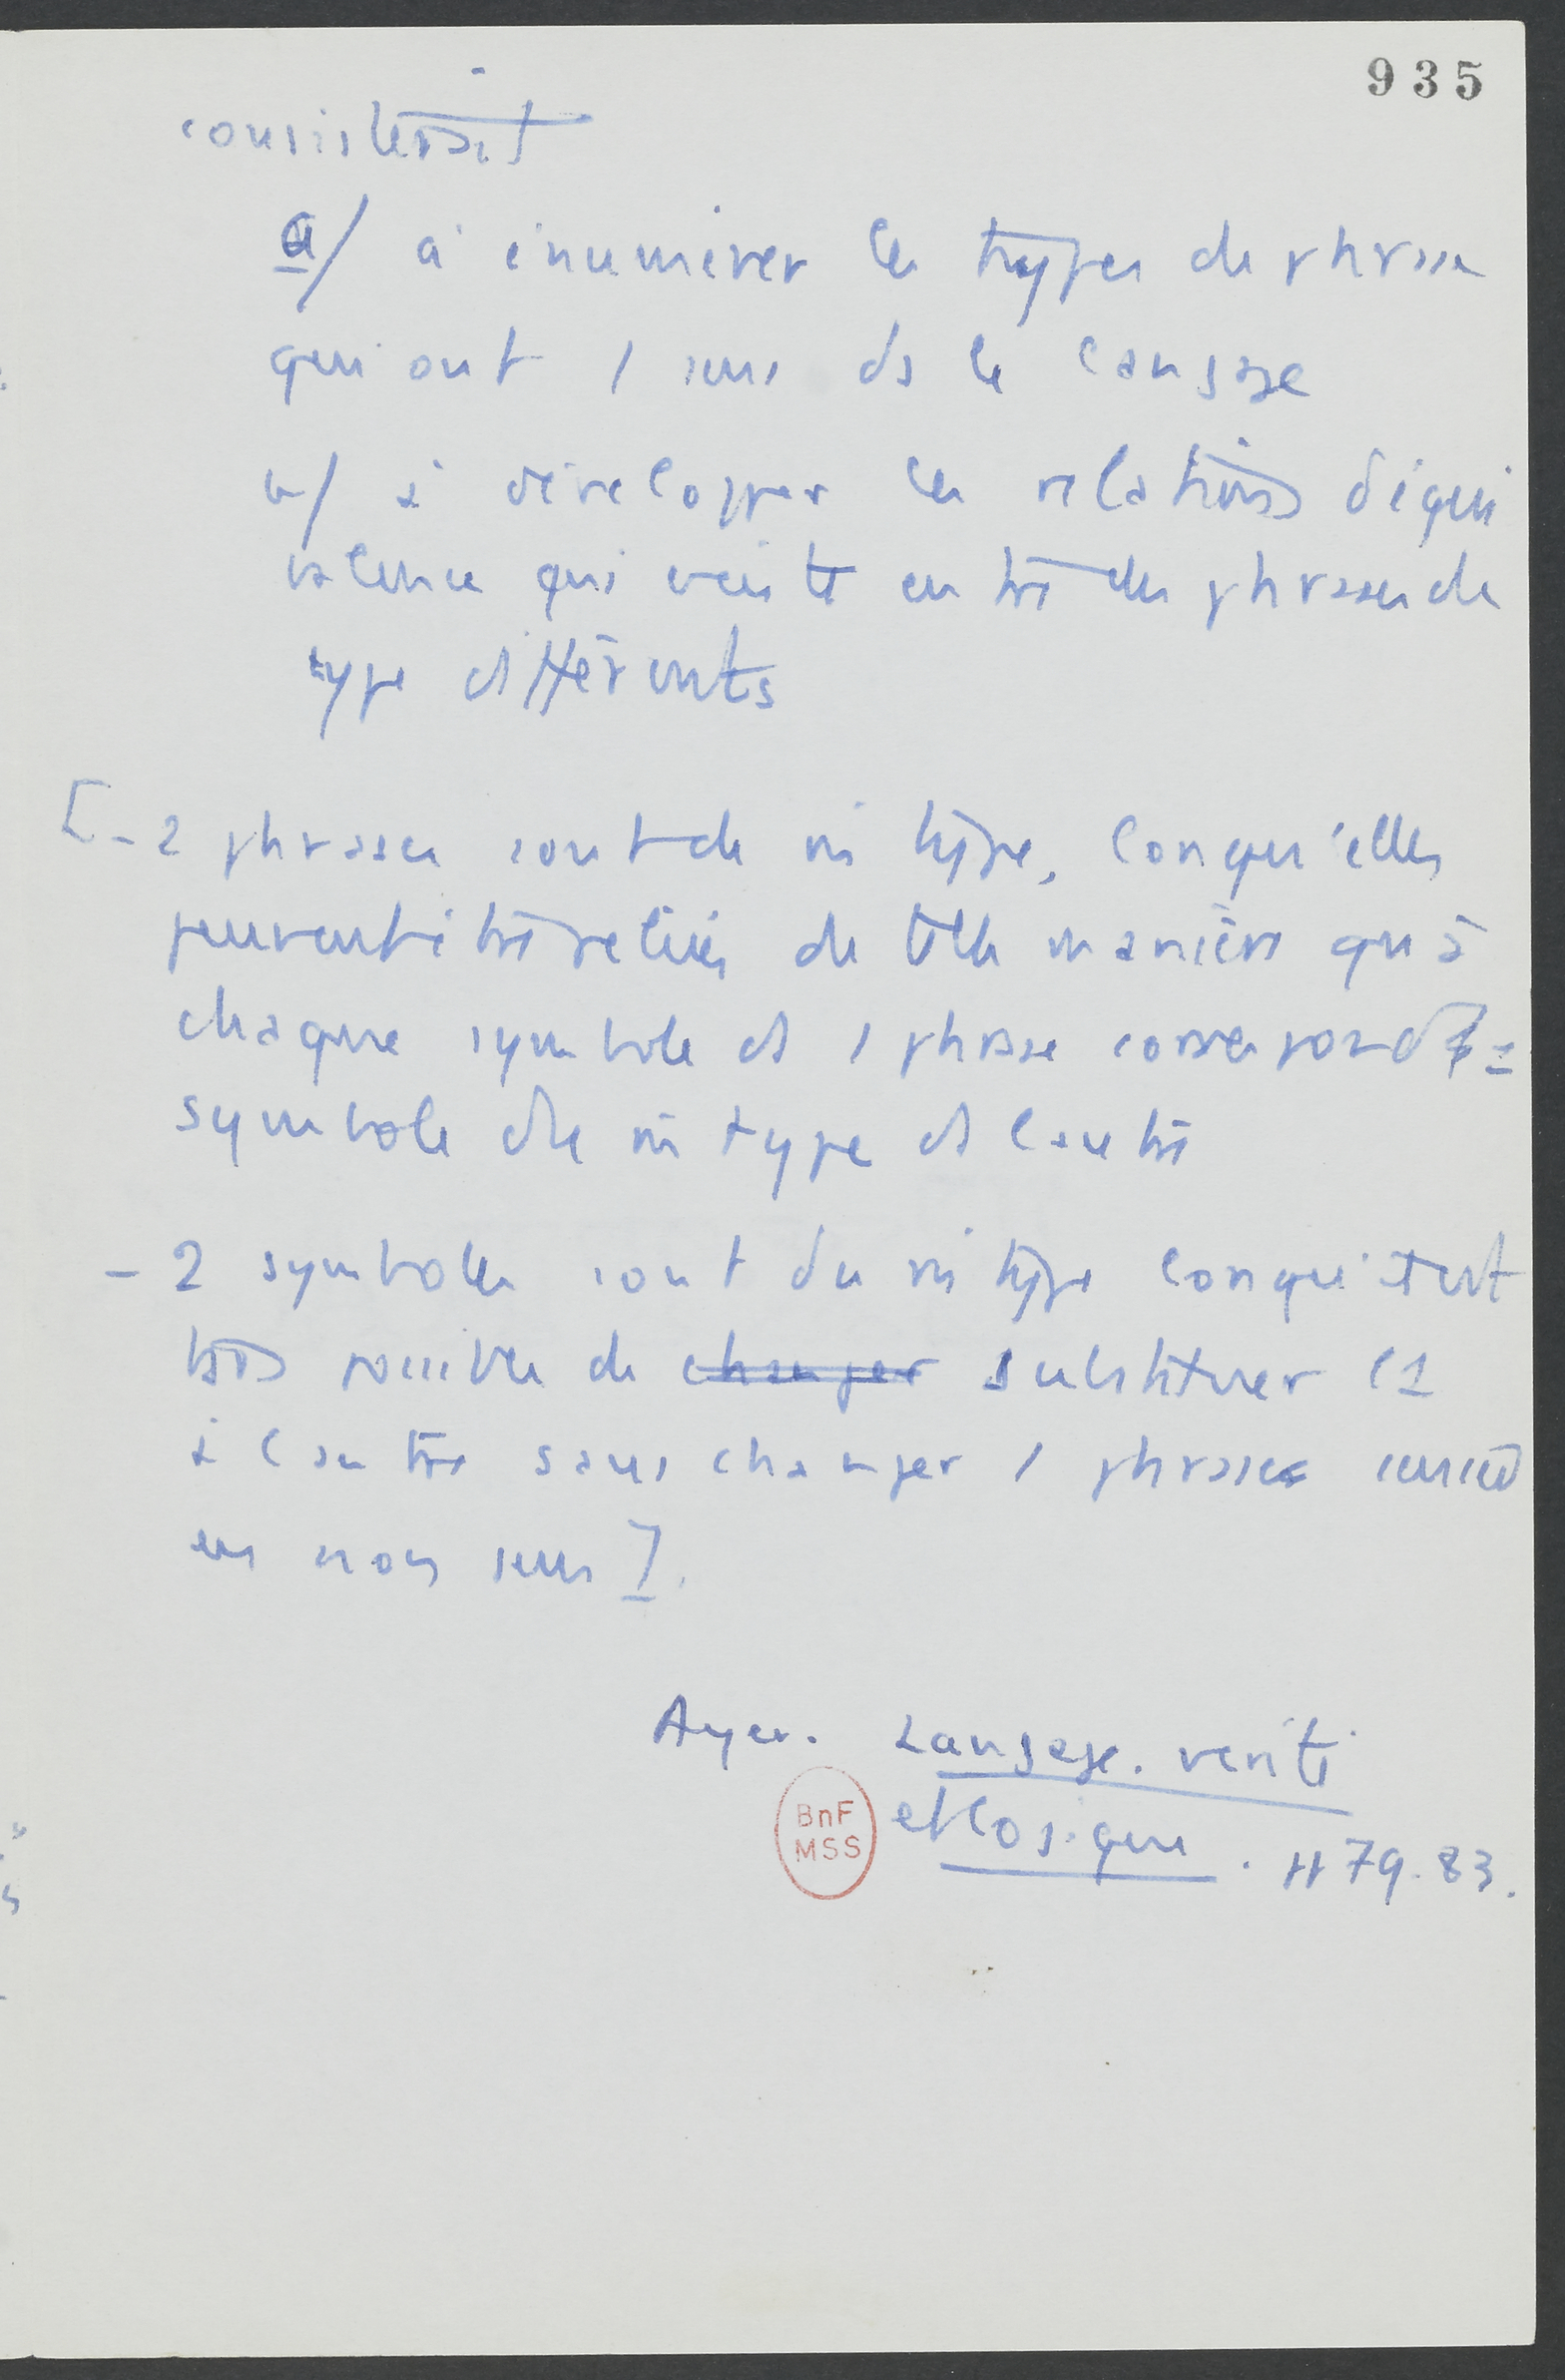 935
consisterait
a/ à énumérer les types de phrase
qui ont 1 sens ds le langage
b/ à développer les relations d'équi
valence qui existe entre des phrases de
type différents
[- 2 phrases sont de m̂ type, lorsqu'elles
peuvent être reliées de telle manière qu'à
chaque symbole d 1 phrase correspond 1
symbole de m̂ type d l'autre
- 2 symboles sont du m̂ type lorsqu'il est
possible de changer substituer l'1
à l'autre sans changer 1 phrase sensée
en non sens].
Ayer. Langage. vérité
et logique. pp 79-83.
BnF
MSS